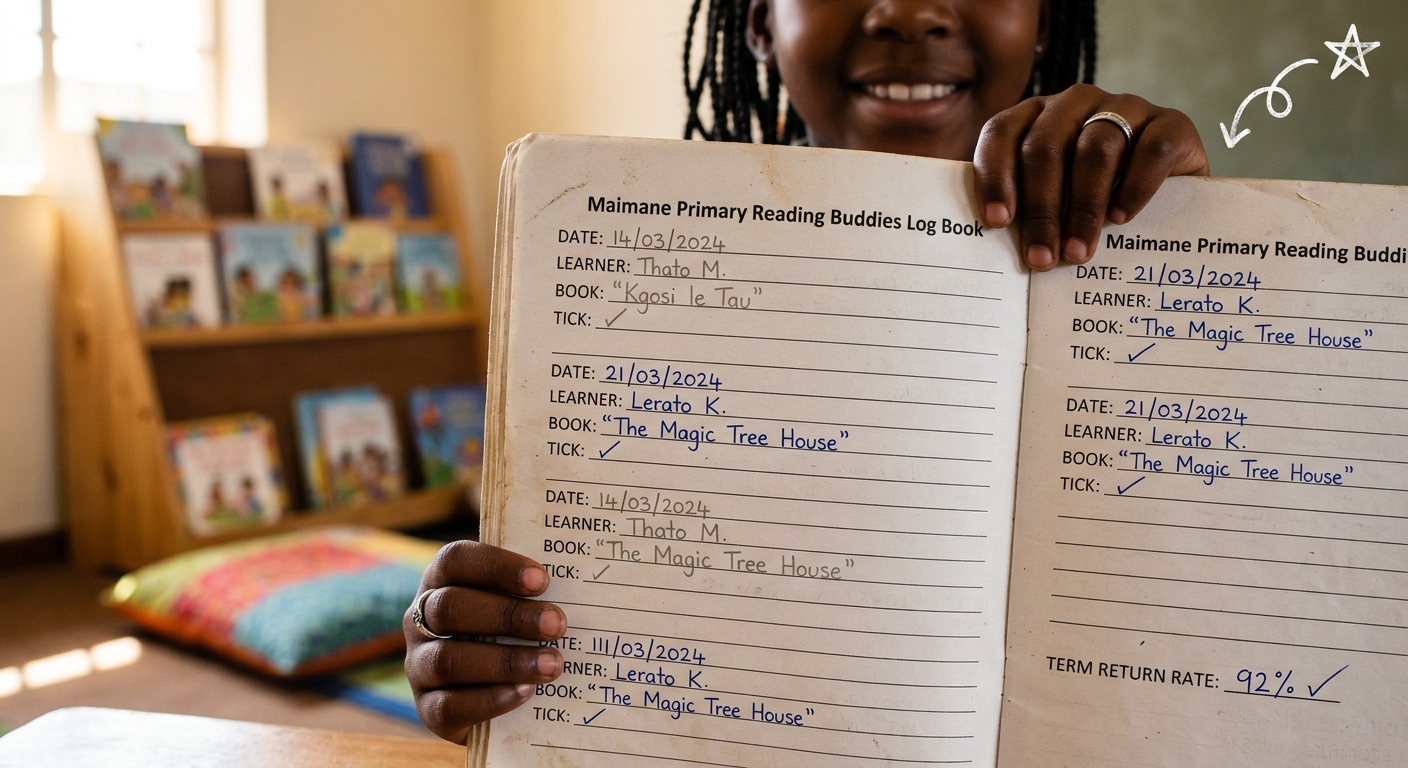 Maimane Primary Reading Buddies Log Book
DATE: 14/03/2024
LEARNER: Thato M.
BOOK: "Kgosi le Tau"
TICK: ✓
DATE: 21/03/2024
LEARNER: Lerato K.
BOOK: "The Magic Tree House"
TICK: ✓
DATE: 14/03/2024
LEARNER: Thato M.
BOOK: "The Magic Tree House"
TICK: ✓
DATE: 111/03/2024
RNER: Lerato K.
BOOK: "The Magic Tree House"
TICK: ✓
Maimane Primary Reading Buddi
DATE: 21/03/2024
LEARNER: Lerato K.
BOOK: "The Magic Tree House"
TICK: ✓
DATE: 21/03/2024
LEARNER: Lerato K.
BOOK: "The Magic Tree House"
TICK: ✓
TERM RETURN RATE: 92% ✓